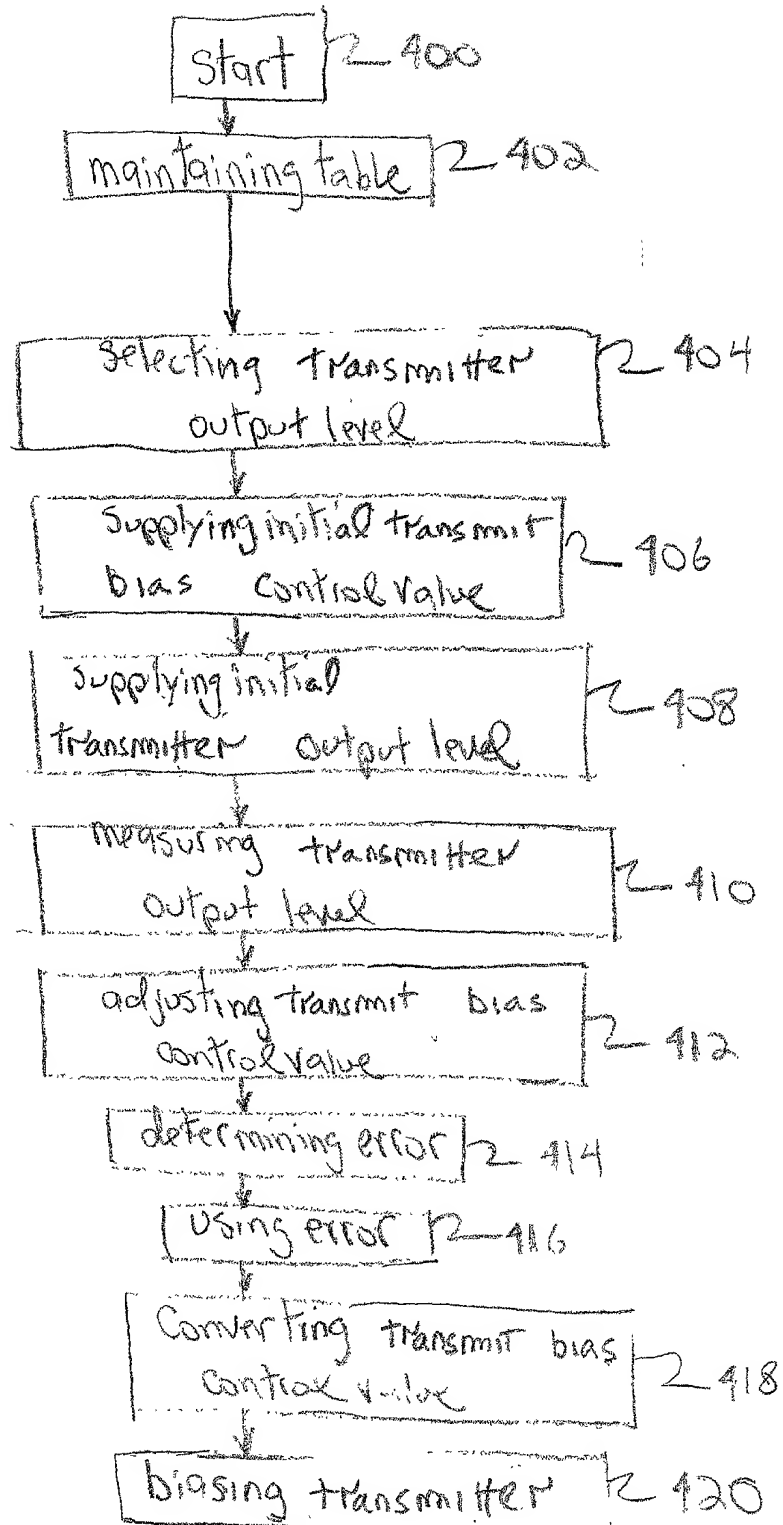 Start 400
maintaining table 402
Selecting transmitter 404
output level
Supplying initial transmit
bias control value 406
Supplying initial
transmitter output level 408
measuring transmitter
output level 410
adjusting transmit bias
control value 412
determining error 414
using error 416
Converting transmit bias
control value 418
biasing transmitter 420